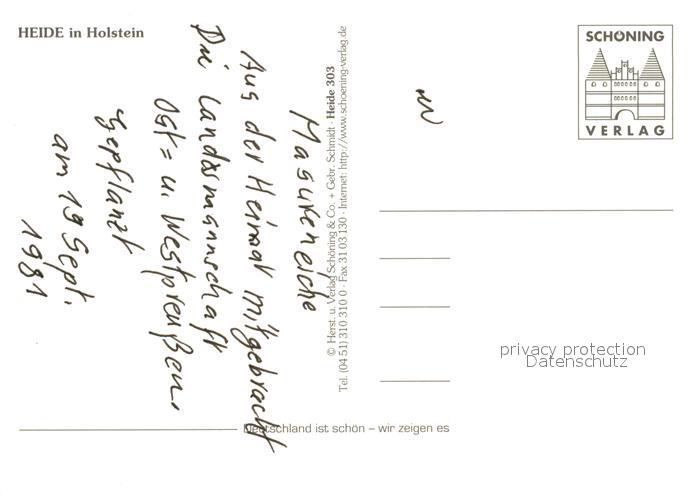 HEIDE in Holstein
Masureneiche
Aus der Heimat mitgebracht
Die Landsmannschaft
Ost= u. Westpreußen.
gepflanzt
am 19 Sept.
1981
© Herst. u. Verlag Schöning & Co. + Gebr. Schmidt · Heide 303
Tel. (04 51) 310 310 0 · Fax 31 03 130 · Internet: http://www.schoening-verlag.de
Deutschland ist schön – wir zeigen es
SCHÖNING
VERLAG
privacy protection
Datenschutz